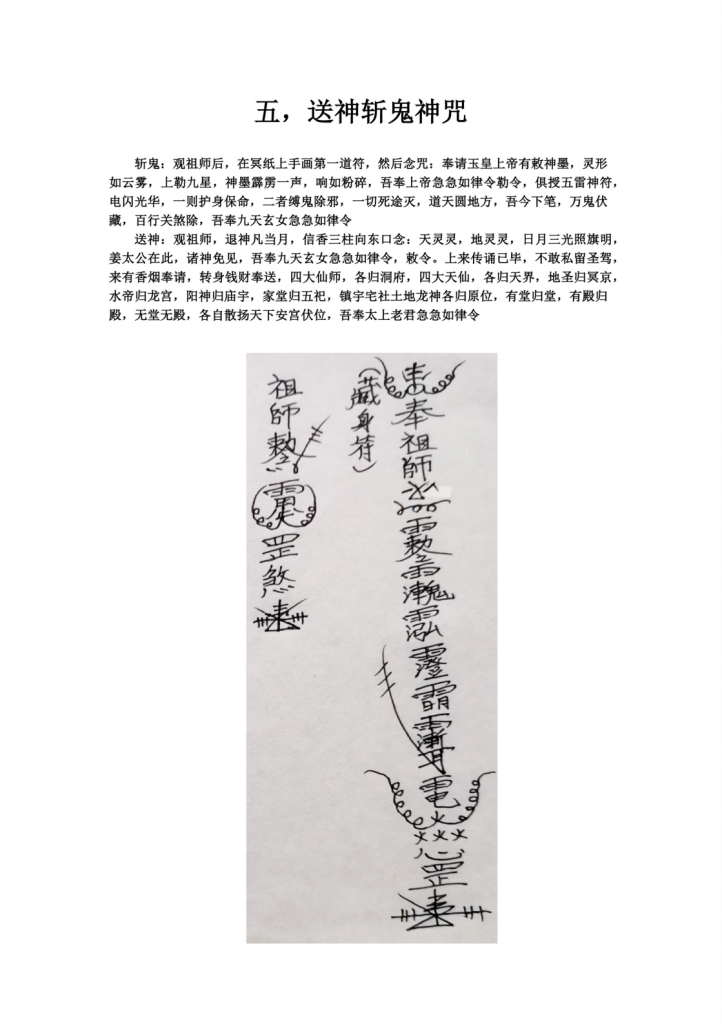 五，送神斩鬼神咒
斩鬼：观祖师后，在冥纸上手画第一道符，然后念咒：奉请玉皇上帝有敕神墨，灵形
如云雾，上勒九星，神墨霹雳一声，响如粉碎，吾奉上帝急急如律令勒令，俱授五雷神符，
电闪光华，一则护身保命，二者缚鬼除邪，一切死途灭，道天圆地方，吾今下笔，万鬼伏
藏，百行关煞除，吾奉九天玄女急急如律令
送神：观祖师，退神凡当月，信香三柱向东口念：天灵灵，地灵灵，日月三光照旗明，
姜太公在此，诸神免见，吾奉九天玄女急急如律令，敕令。上来传诵已毕，不敢私留圣驾，
来有香烟奉请，转身钱财奉送，四大仙师，各归洞府，四大天仙，各归天界，地圣归冥京，
水帝归龙宫，阳神归庙宇，家堂归五祀，镇宇宅社土地龙神各归原位，有堂归堂，有殿归
殿，无堂无殿，各自散扬天下安宫伏位，吾奉太上老君急急如律令
奉祖師
罡
（藏身符）
祖師
罡煞